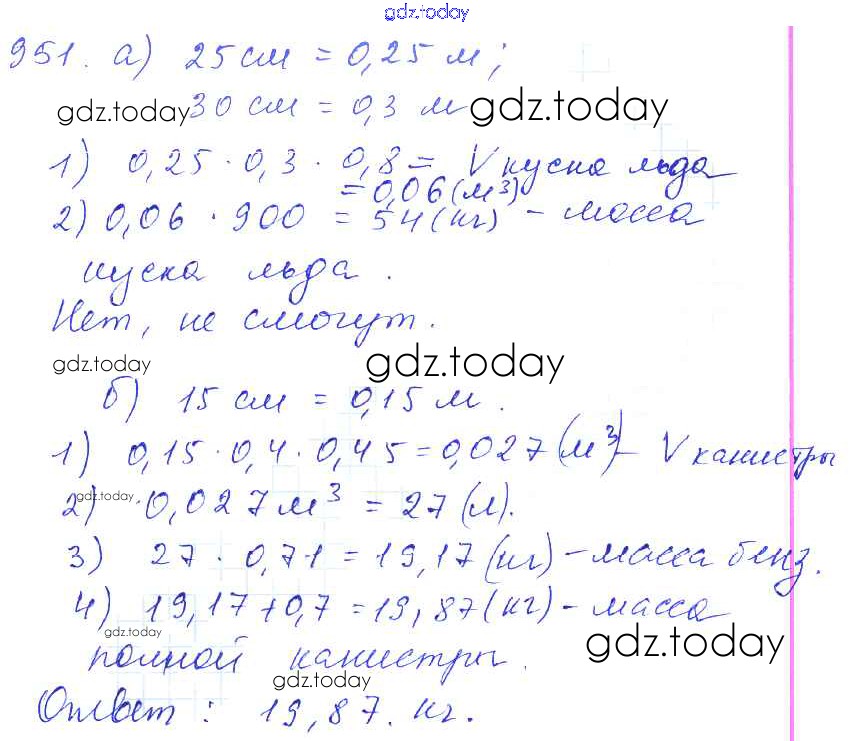 gdz.today
951. а) 25 см = 0,25 м;
gdz.today 30 см = 0,3 м gdz.today
1) 0,25 · 0,3 · 0,8 = V куска льда
= 0,06 (м³)
2) 0,06 · 900 = 54 (кг) - масса
куска льда.
Нет, не смогут.
gdz.today gdz.today
б) 15 см = 0,15 м.
1) 0,15 · 0,4 · 0,45 = 0,027 (м³) - V канистры
gdz.today
2) 0,027 м³ = 27 (л).
3) 27 · 0,71 = 19,17 (кг) - масса бенз.
4) 19,17 + 0,7 = 19,87 (кг) - масса
gdz.today gdz.today
полной канистры.
gdz.today
Ответ: 19,87. кг.